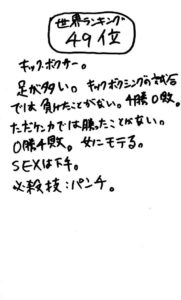 世界ランキング
49位
キックボクサー。
足が多い。キックボクシングの試合
では負けたことがない。4勝0敗。
ただケンカでは勝ったことがない。
0勝4敗。女にモテる。
SEXは下手。
必殺技:パンチ。